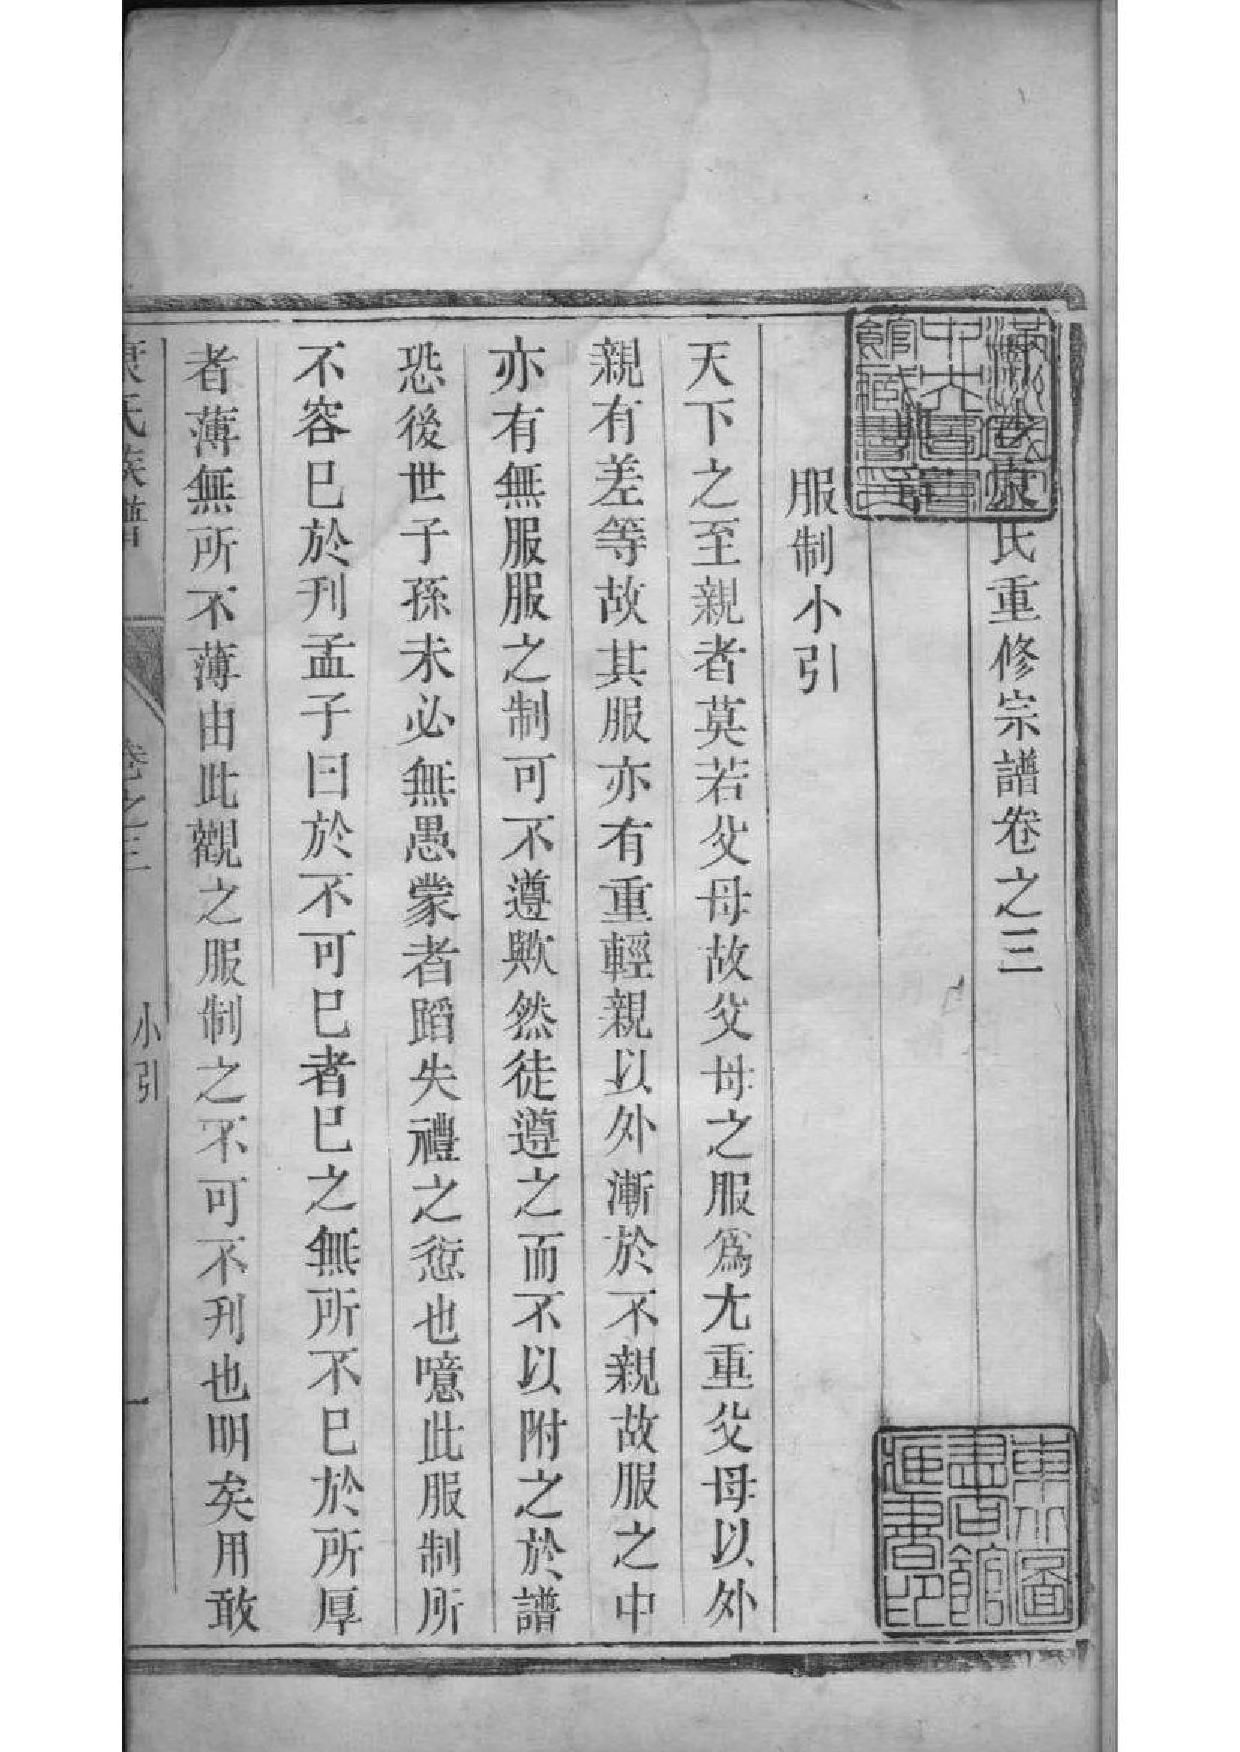 康氏重修宗譜卷之三
服制小引
天下之至親者莫若父母故父母之服爲尤重父母以外
親有差等故其服亦有重輕親以外漸於不親故服之中
亦有無服服之制可不遵歟然徒遵之而不以附之於譜
恐後世子孫未必無愚蒙者蹈失禮之愆也噫此服制所
不容已於刋孟子曰於不可已者已之無所不已於所厚
者薄無所不薄由此觀之服制之不可不刋也明矣用敢
康氏族譜
卷之三
小引
一
東北圖
書館
藏書印